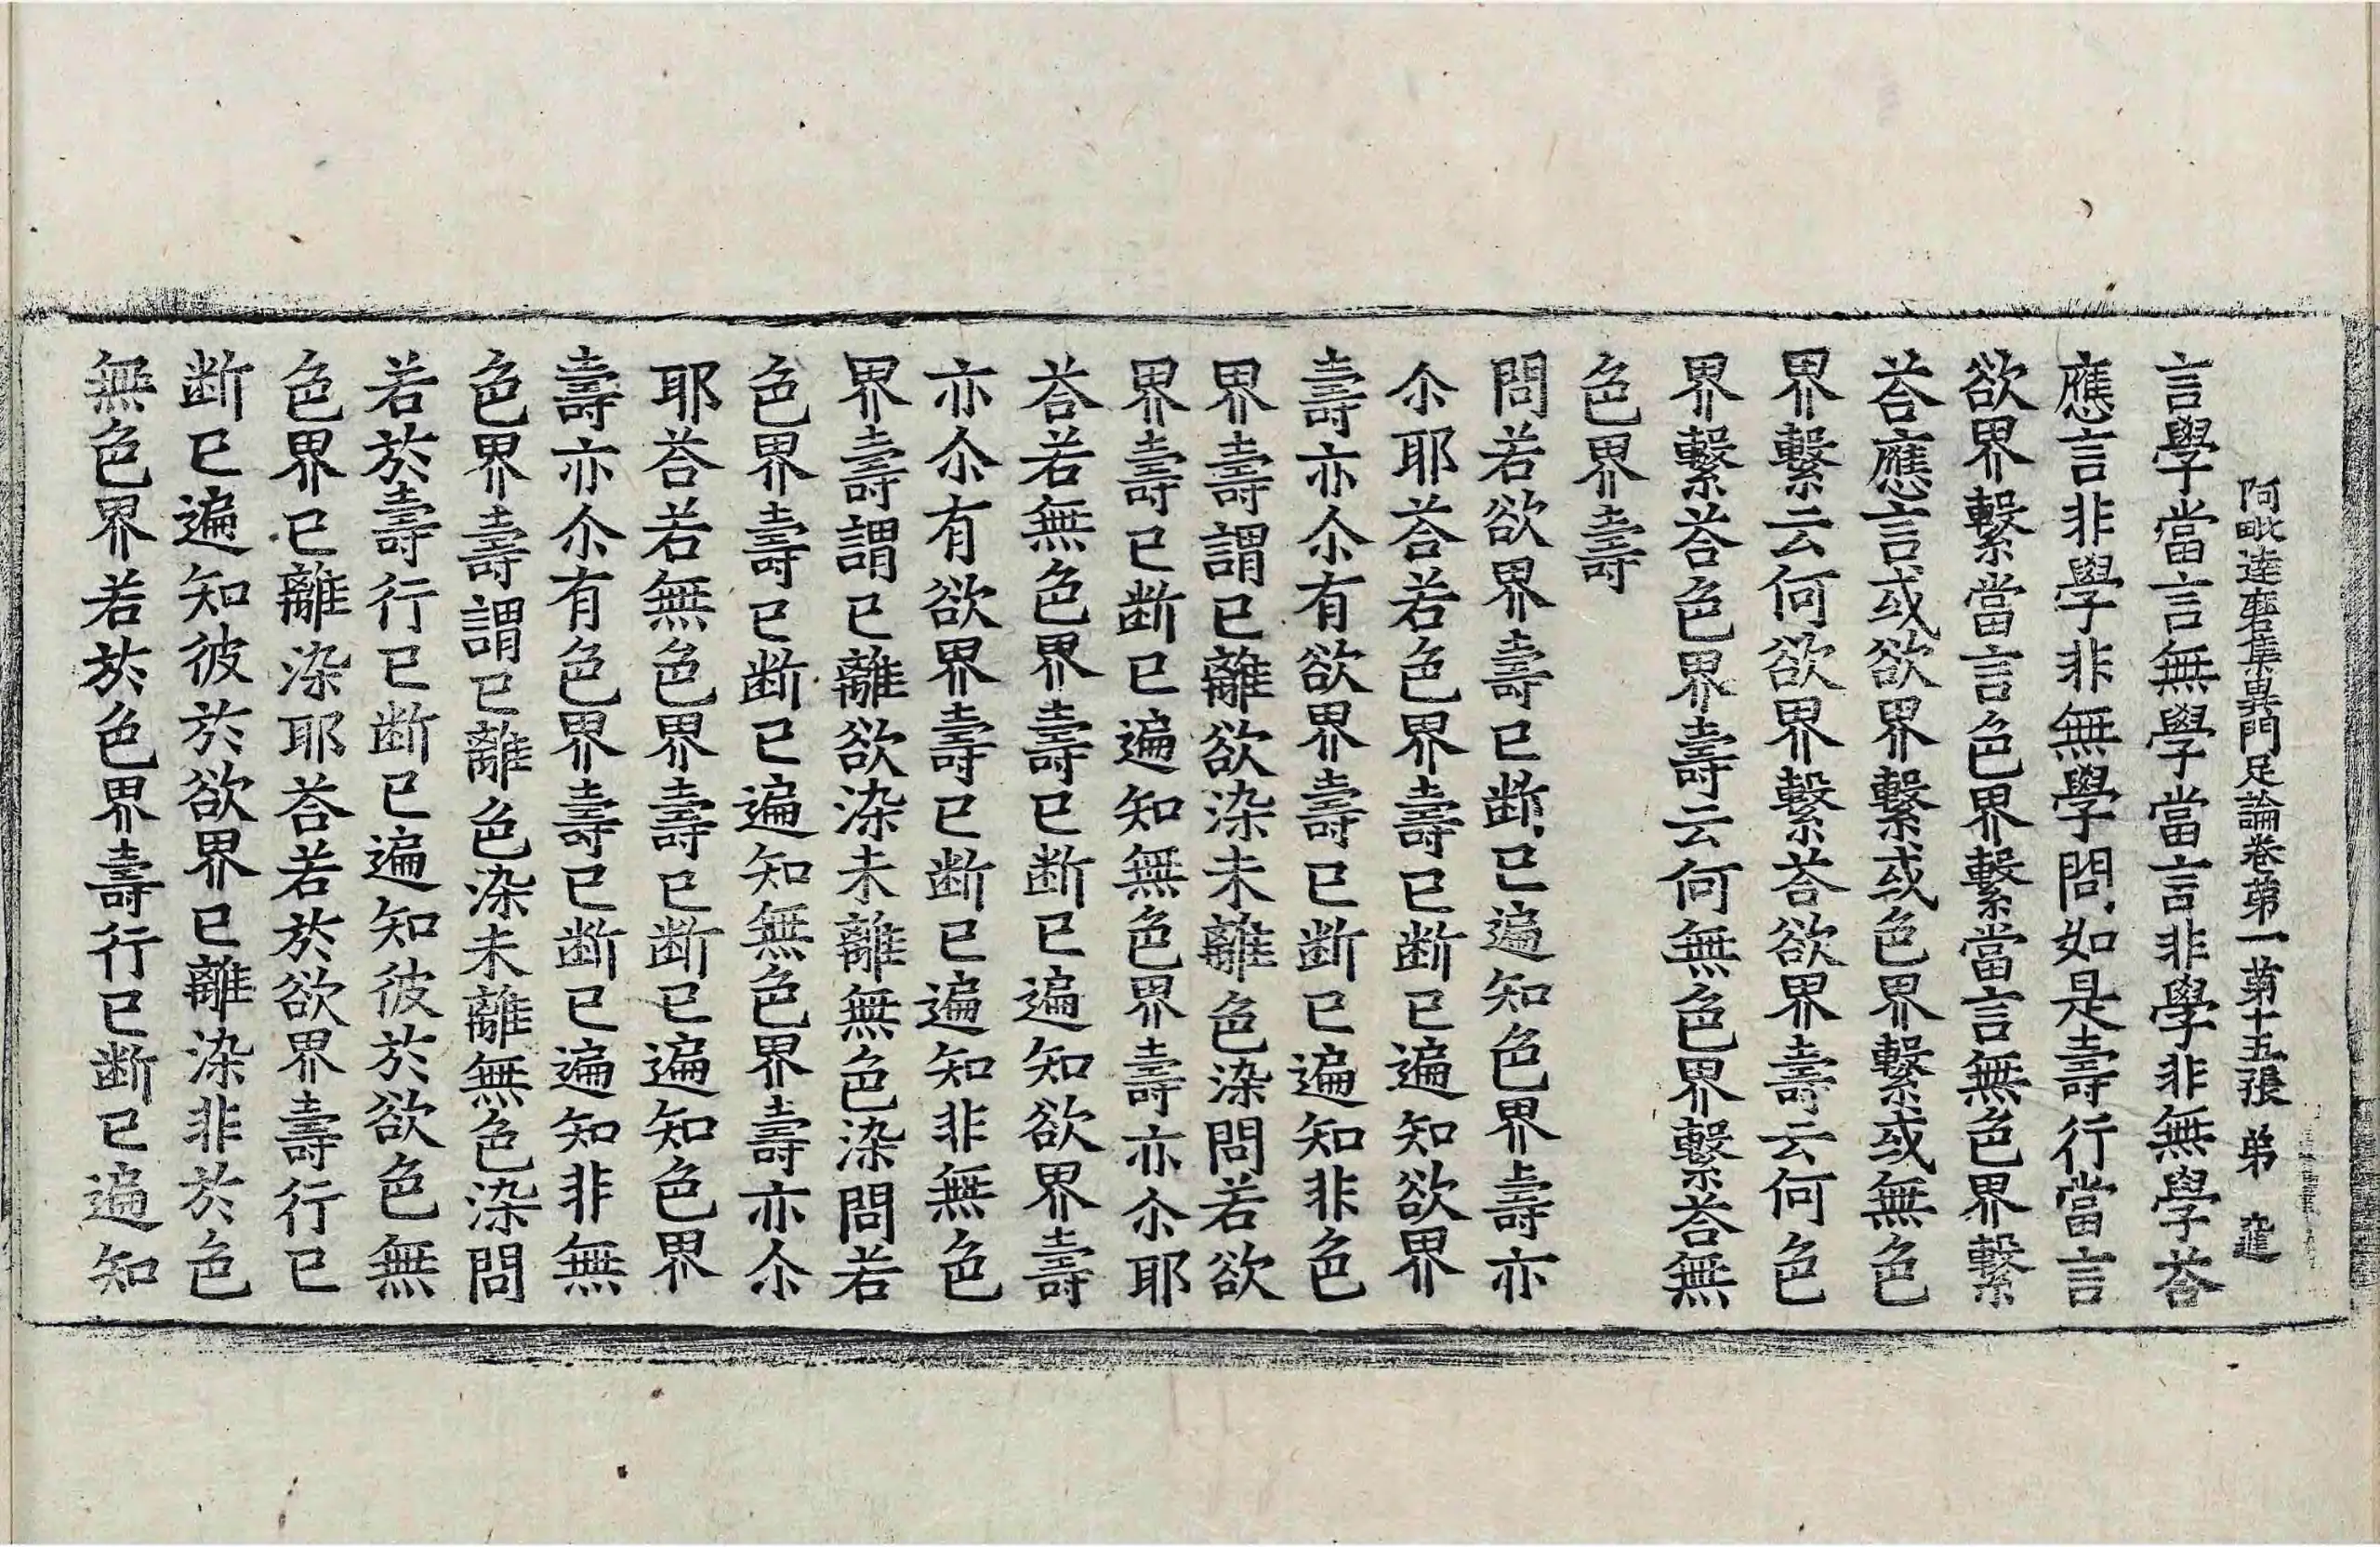 阿毗達磨集異門足論卷第一 第十五張 弟
言學當言無學當言非學非無學荅
應言非學非無學問如是壽行當言
欲界繫當言色界繫當言無色界繫
荅應言或欲界繫或色界繫或無色
界繫云何欲界繫荅欲界壽云何色
界繫荅色界壽云何無色界繫荅無
色界壽
問若欲界壽已断已遍知色界壽亦
尒耶荅若色界壽已断已遍知欲界
壽亦尒有欲界壽已断已遍知非色
界壽謂已離欲染未離色染問若欲
界壽已断已遍知無色界壽亦尒耶
荅若無色界壽已断已遍知欲界壽
亦尒有欲界壽已断已遍知非無色
界壽謂已離欲染未離無色染問若
色界壽已断已遍知無色界壽亦尒
耶荅若無色界壽已断已遍知色界
壽亦尒有色界壽已断已遍知非無
色界壽謂已離色染未離無色染問
若於壽行已断已遍知彼於欲色無
色界已離染耶荅若於欲界壽行已
断已遍知彼於欲界已離染非於色
無色界若於色界壽行已断已遍知